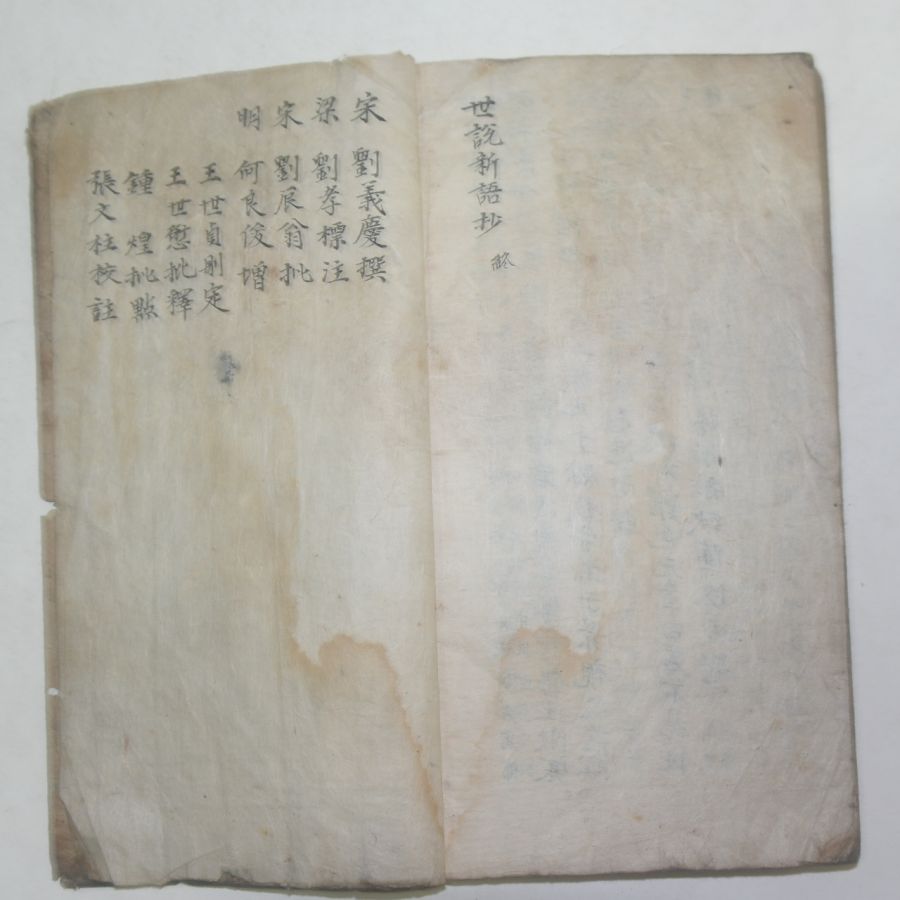 世說新語抄 終
宋 劉義慶撰
梁 劉孝標注
宋 劉辰翁批
明 何良俊增
王世貞刪定
王世懋批釋
鍾 惺批點
張文柱校註